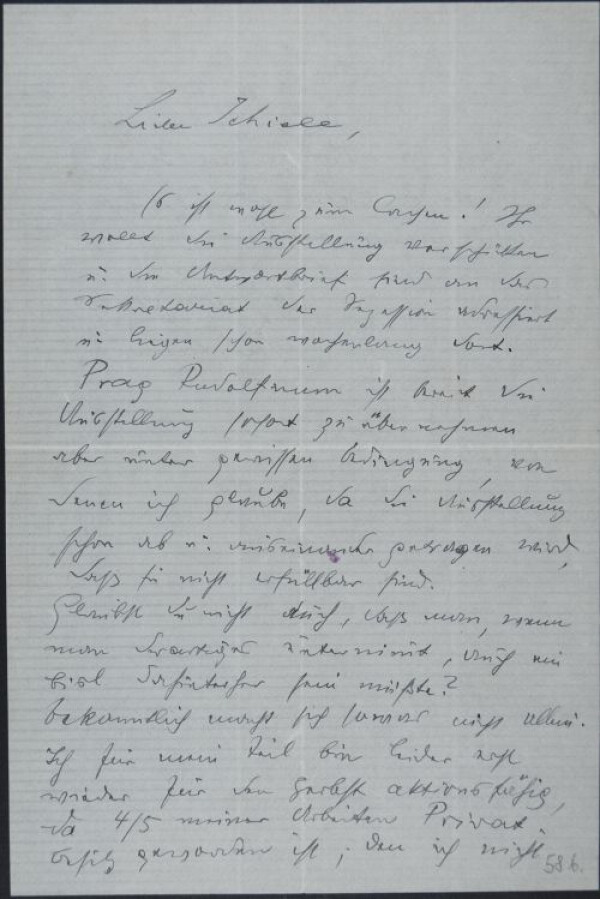 Lieber Schiele,
Es ist wohl zum Lachen! Ihr
wollt die Ausstellung verschicken
u. die Antwortbriefe sind an das
Sekretariat der Sezession adressiert
u. liegen schon wochenlang dort.
Prag Rudolfinum ist bereit die
Ausstellung sofort zu übernehmen
aber unter gewissen Bedingung, von
denen ich glaube, da die Ausstellung
schon ab u. auseinander getragen wird,
daß sie nicht erfüllbar sind.
Glaubst Du nicht auch, daß man, wenn
man derartiges unternimt, auch ein
bisl dahinterher sein müßte?
Bekanntlich macht sich sowas nicht allein.
Ich für mein Teil bin leider erst
wieder für den Herbst aktionsfähig,
da 4/5 meiner Arbeiten Privat-
besitz geworden ist; den ich nicht
586.